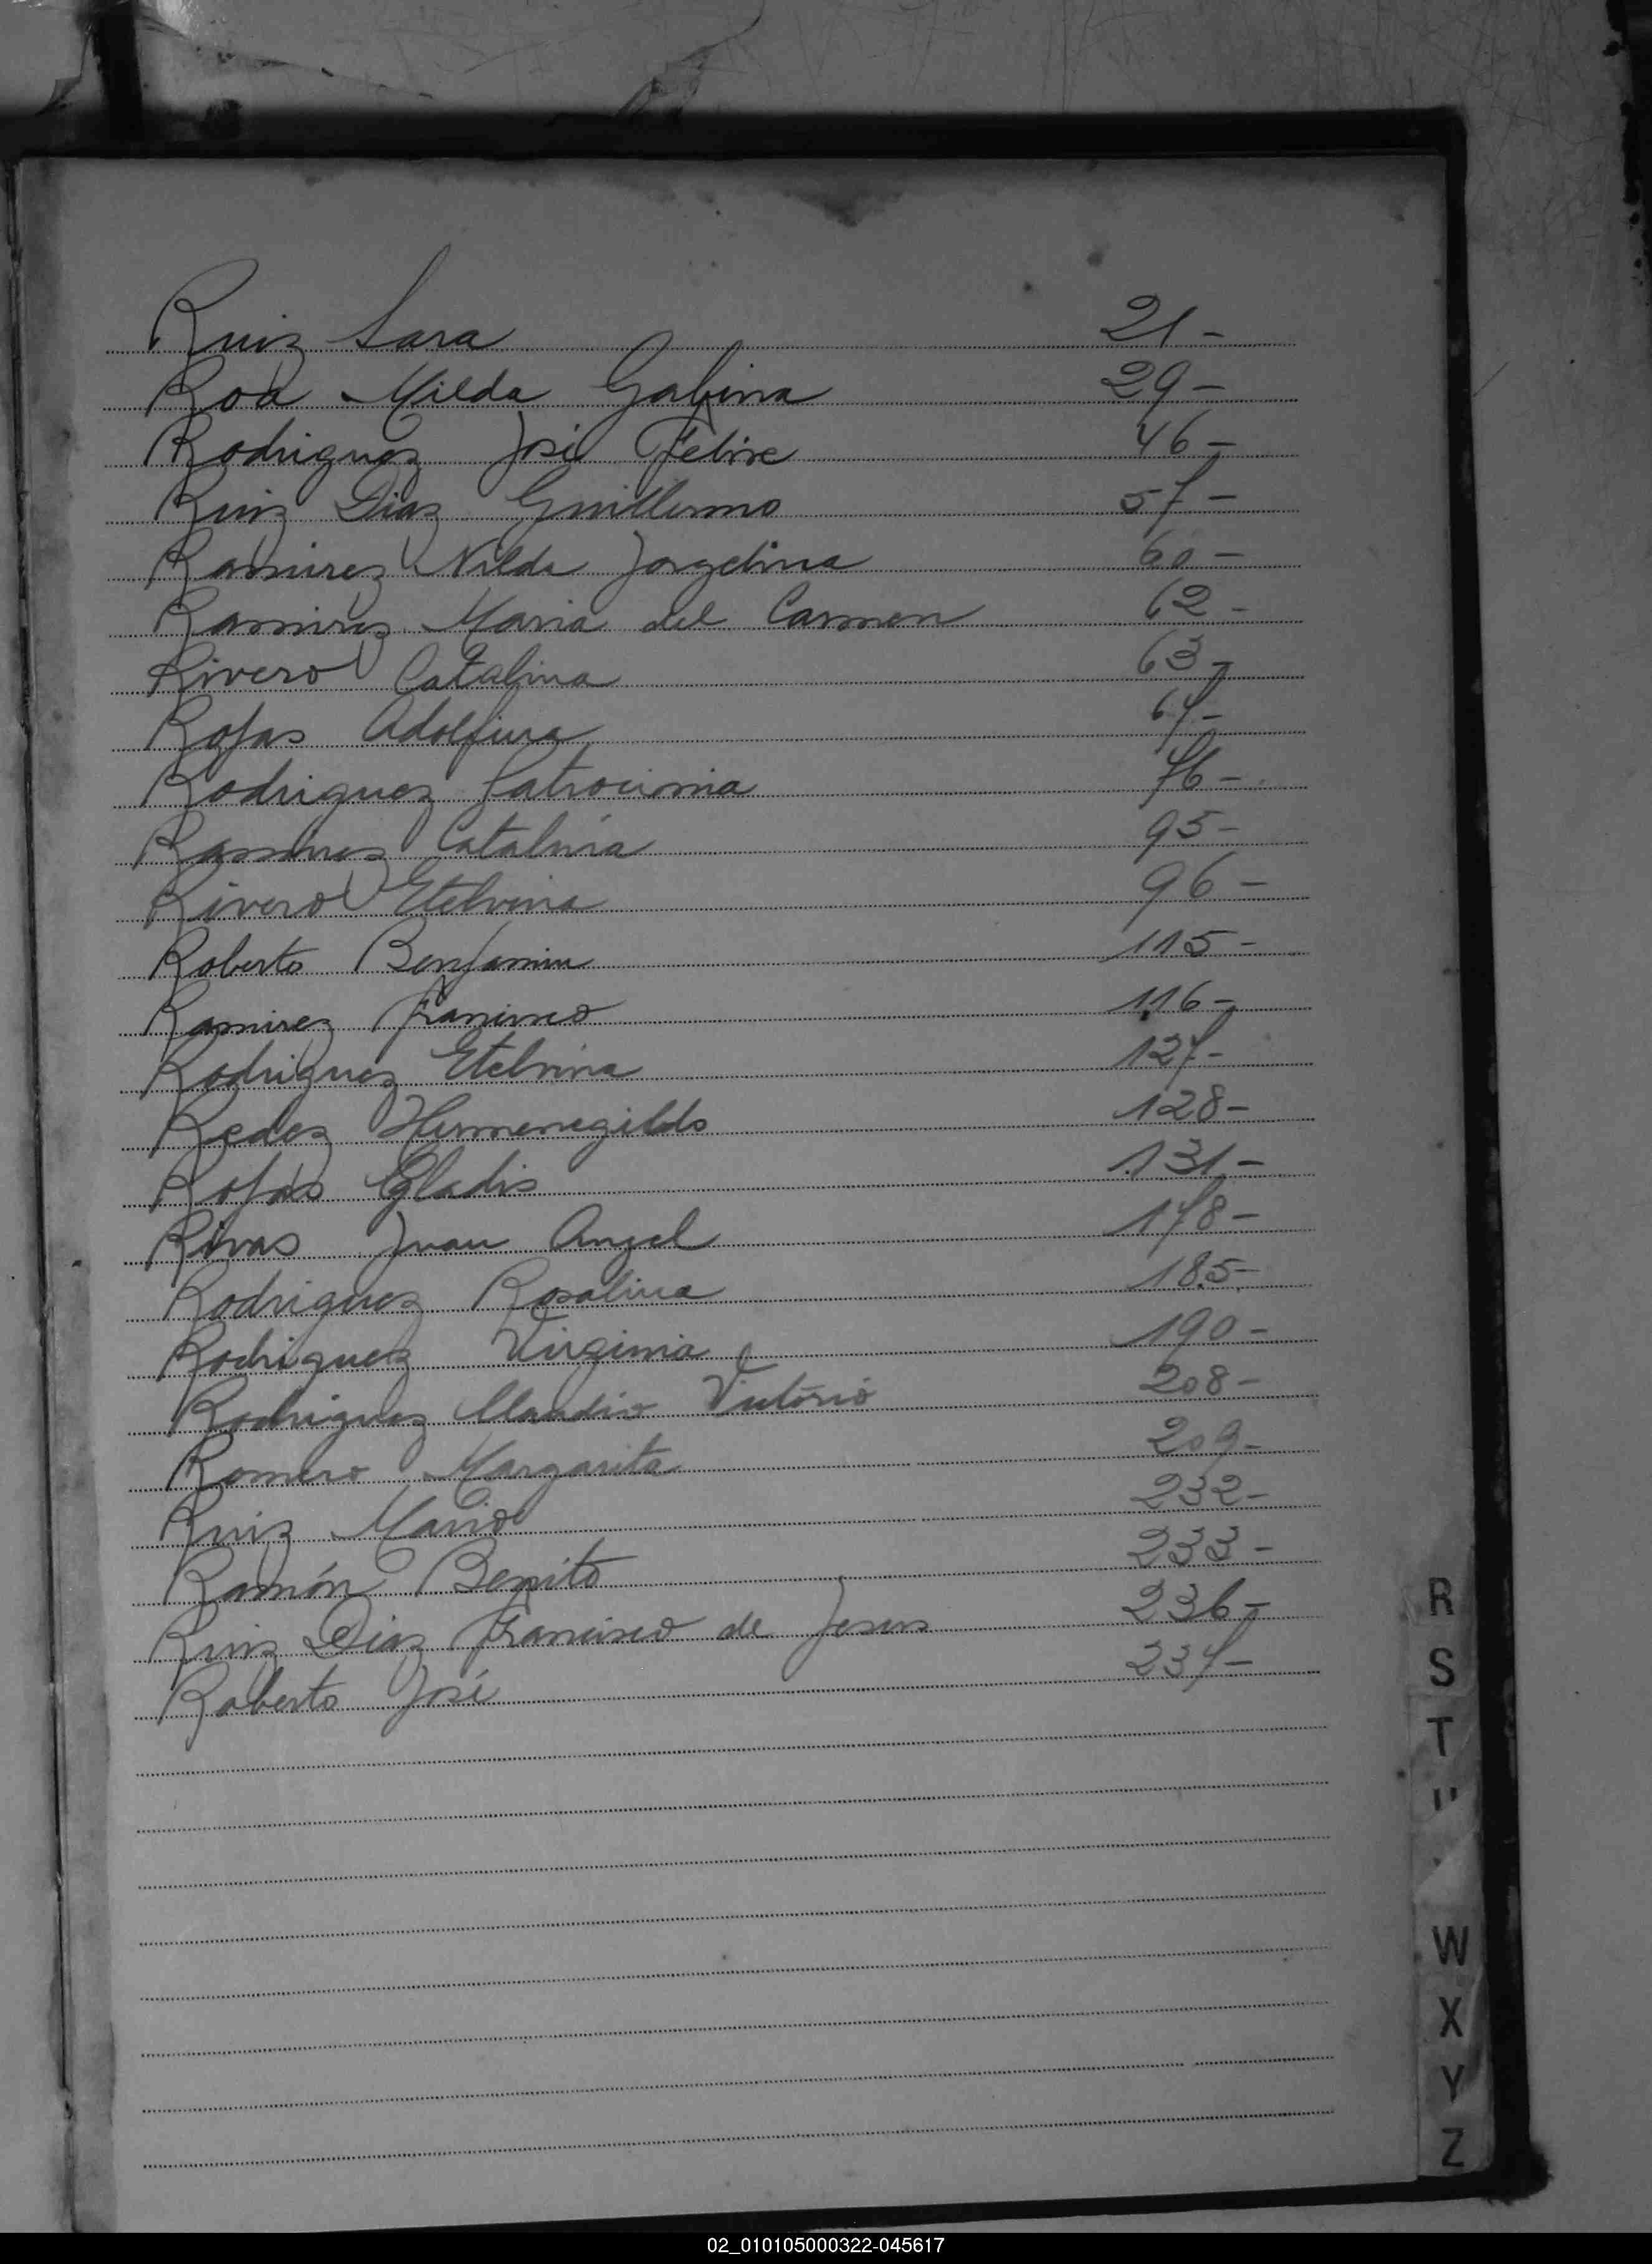 Ruiz Sara 21-
Roa Milda Gabina 29-
Rodriguez José Felise 46-
Ruiz Diaz Guillermo 57-
Ramirez Nilda Jorgelina 60-
Ramirez Maria del Carmen 62-
Rivero Catalina 63-
Rojas Adolfina 67-
Rodriguez Patrocinia 76-
Ramirez Catalina 95-
Rivero Etelvina 96-
Roberto Benjamin 115-
Ramirez Francisco 116-
Rodriguez Etelvina 127-
Redez Hermenegildo 128-
Rojas Gladis 131-
Rivas Juan Angel 178-
Rodriguez Rosalina 185-
Rodriguez Virginia 190-
Rodriguez Claudio Victorio 208-
Romero Margarita 209-
Ruiz Mario 232-
Ramón Benito 233-
Ruiz Diaz Francisco de Jesus 236-
Roberto José 237-
R
S
T
W
X
Y
Z
02_010105000322-045617